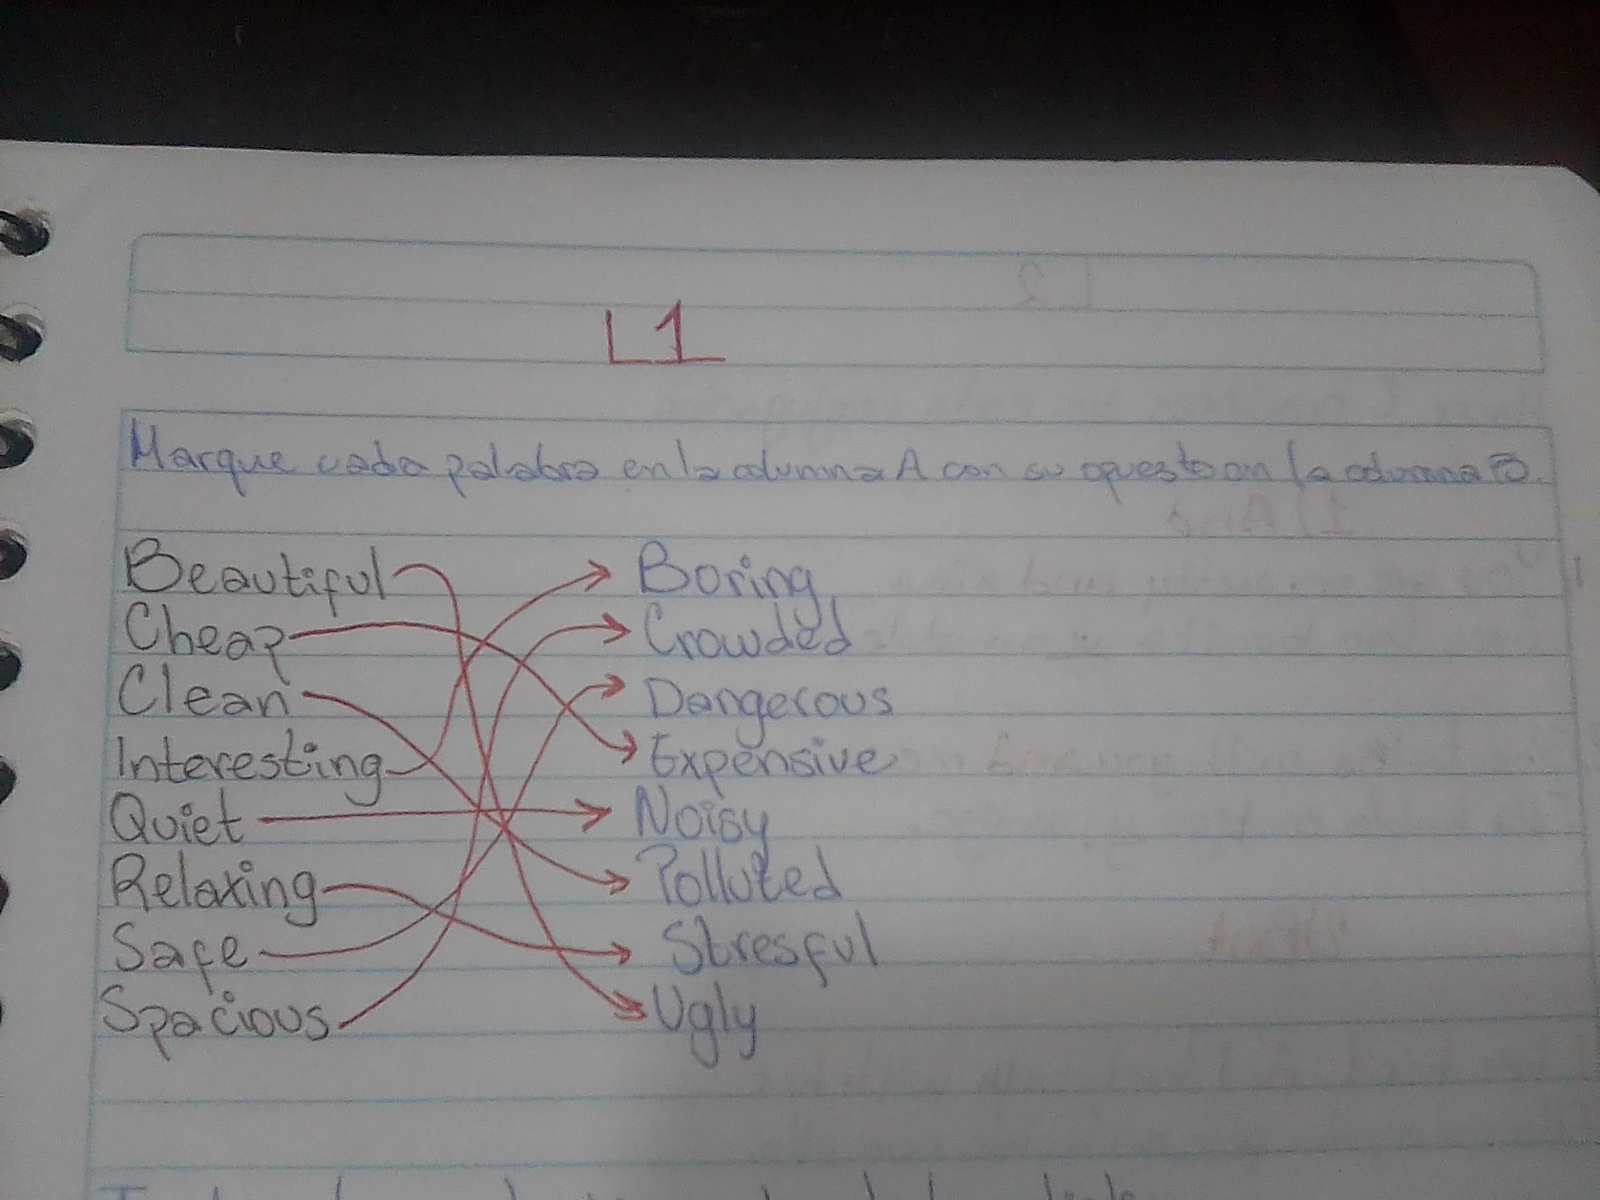 L1
Marque cada palabra en la columna A con su opuesto en la columna B.
Beautiful Boring
Cheap Crowded
Clean Dangerous
Interesting Expensive
Quiet Noisy
Relaxing Polluted
Safe Stresful
Spacious Ugly